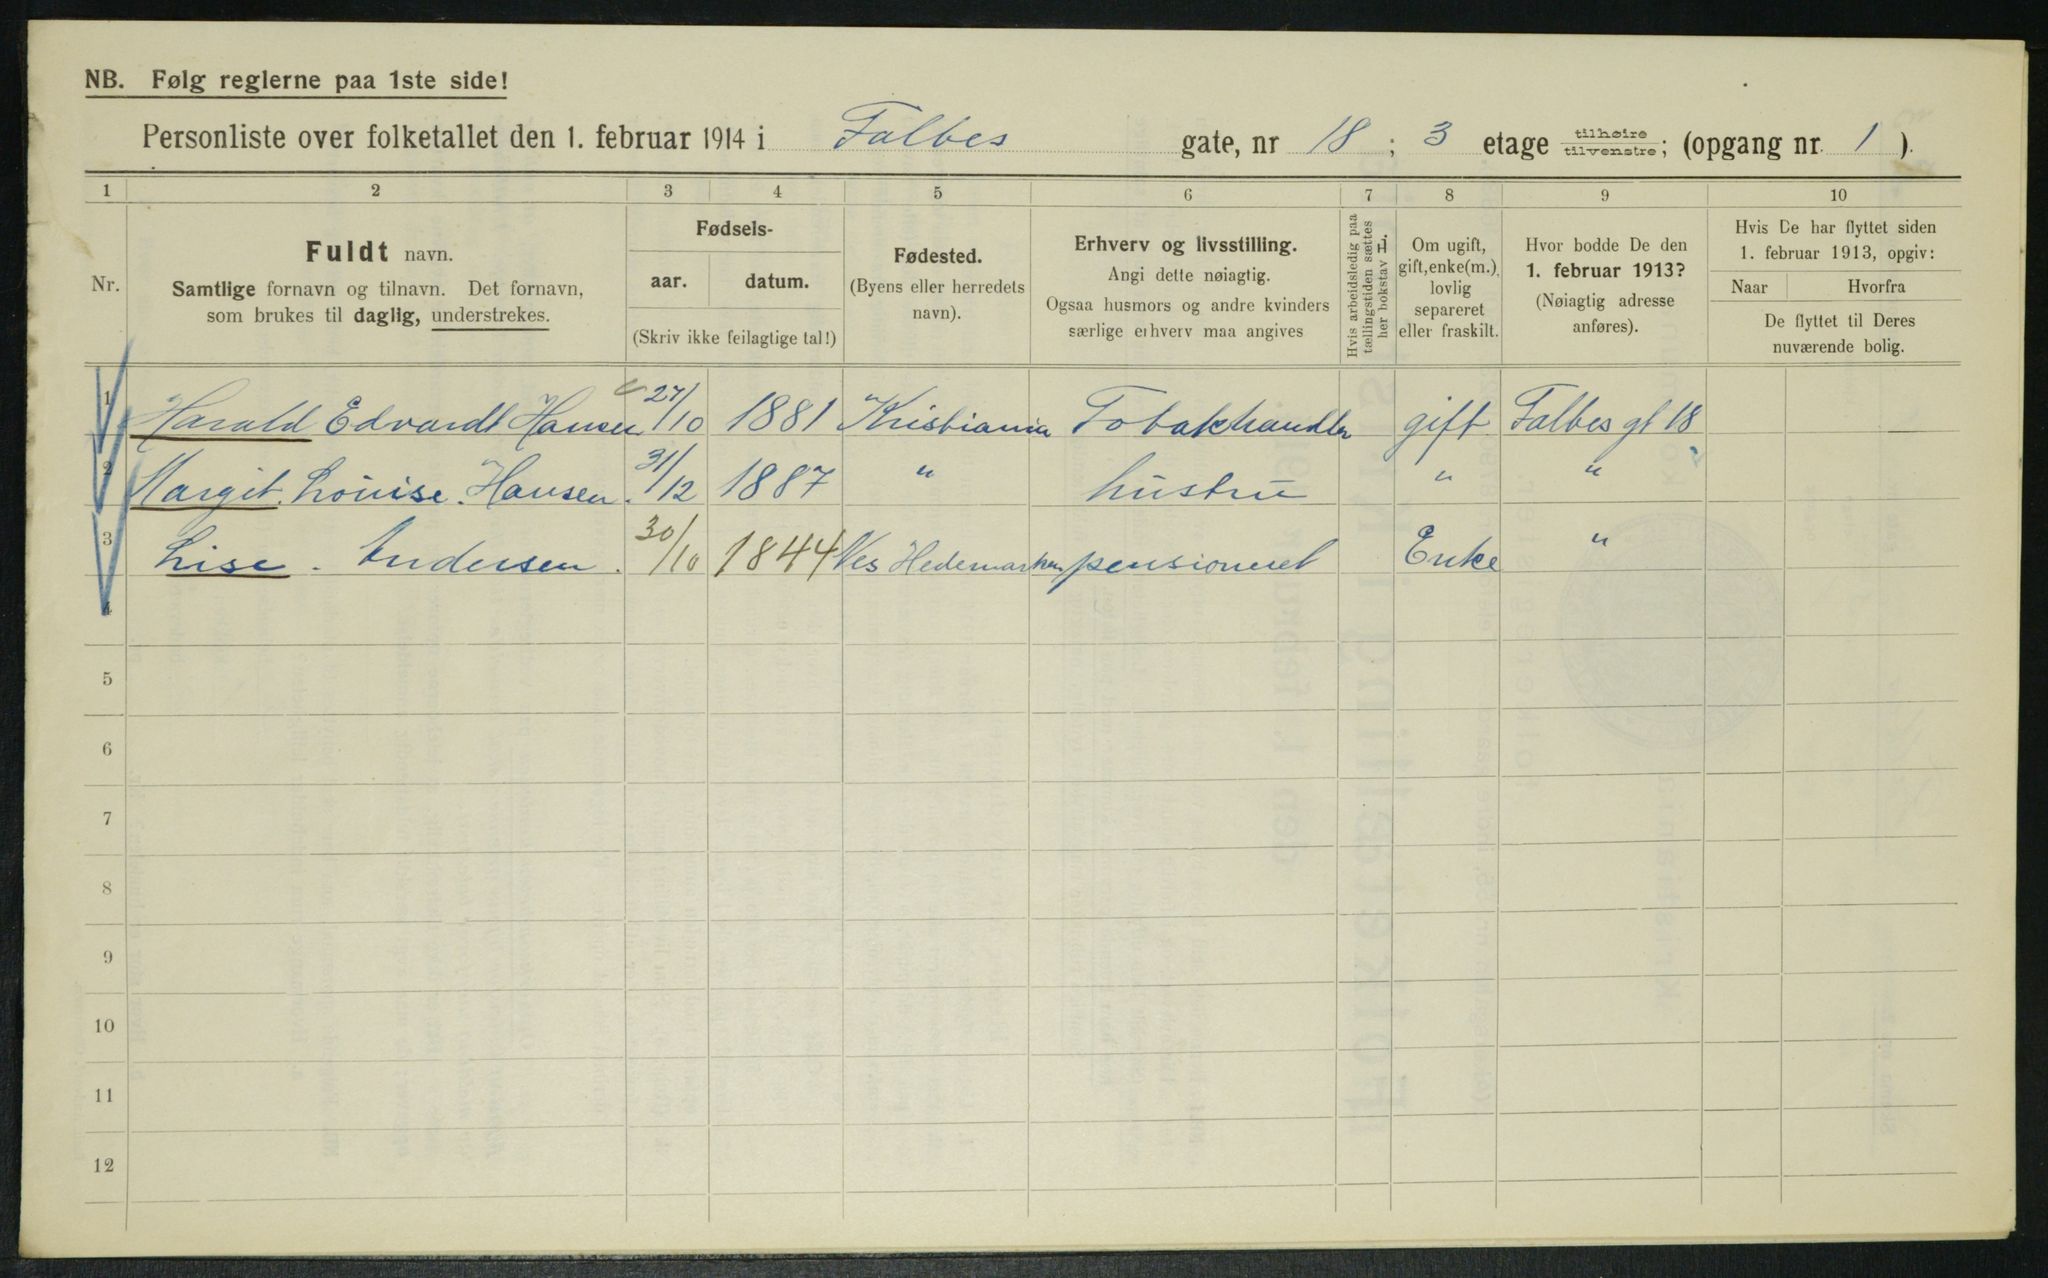 NB. Følg reglerne paa 1ste side!
Personliste over folketallet den 1. februar 1914 i Falbes gate, nr 18; 3 etage tilhøire tilvenstre; (opgang nr. 1).
1 2 3 4 5 6 7 8 9 10
Nr.
Fuldt navn.
Samtlige fornavn og tilnavn. Det fornavn,
som brukes til daglig, understrekes.
Fødsels-
aar. datum.
(Skriv ikke feilagtige tal!)
Fødested.
(Byens eller herredets
navn).
Erhverv og livsstilling.
Angi dette nøiagtig.
Ogsaa husmors og andre kvinders
særlige erhverv maa angives
Hvis arbeidsledig paa
tællingstiden sættes
her bokstav L.
Om ugift,
gift, enke(m.),
lovlig
separeret
eller fraskilt.
Hvor bodde De den
1. februar 1913?
(Nøiagtig adresse
anføres).
Hvis De har flyttet siden
1. februar 1913, opgiv:
Naar Hvorfra
De flyttet til Deres
nuværende bolig.
1 Harald Edvardt Hansen 27/10 1881 Kristiania Tobakhandler gift Falbes gt 18
2 Margit Louise Hansen. 31/12 1887 " hustru " "
3 Lise. Andersen. 30/10 1844 Ves Hedemarken pensioneret Enke "
4
5
6
7
8
9
10
11
12